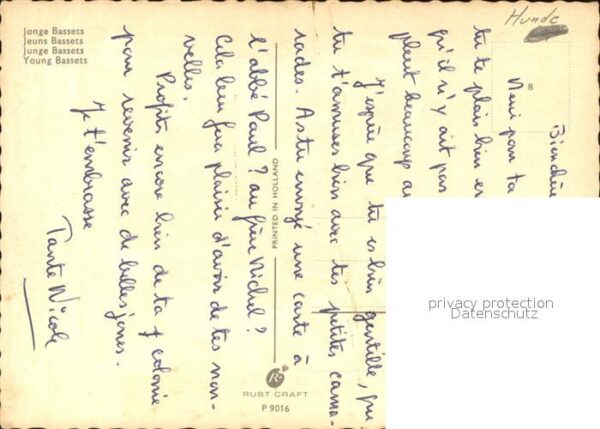 Jonge Bassets
Jeuns Bassets
Junge Bassets
Young Bassets
Hunde
B
Merci pour ta
tu te plais bien
qu'il n'y ait pas
pleut beaucoup
J'espère que tu es bien gentille, que
tu t'amuses bien avec tes petites cama-
rades. As tu envoyé une carte à
l'abbé Paul ? au frère Michel ?
Cela leur fera plaisir d'avoir de tes nou-
velles.
Profite encore bien de ta colonie
pour revenir avec de belles joues.
Je t'embrasse
Tante Nicole
PRINTED IN HOLLAND
RUST CRAFT
P 9016
privacy protection
Datenschutz